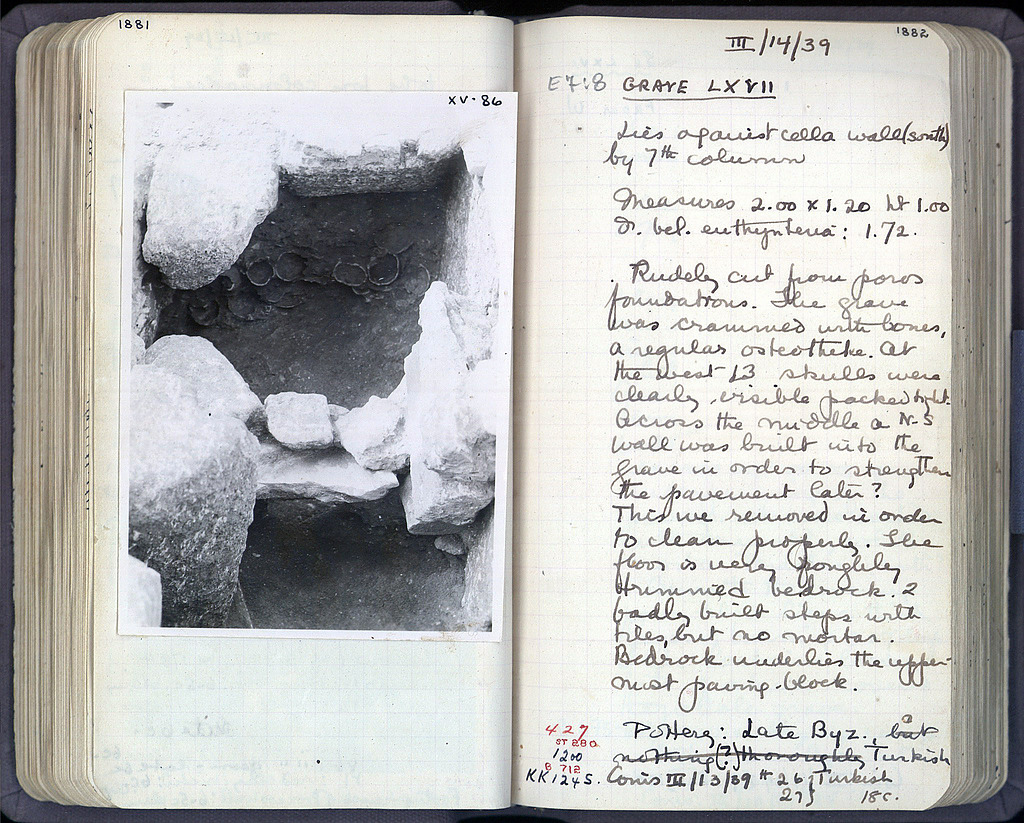 1881
XV·86
1882
III/14/39
E7:8 GRAVE LXVII
Lies against cella wall (south)
by 7th column
Measures 2.00 x 1.20 ht 1.00
D. bel. euthynteria: 1.72.
Rudely cut from poros
foundations. The grave
was crammed with bones,
a regular osteotheke. At
the west 13 skulls were
clearly visible packed tight.
Across the middle a N-S
wall was built into the
grave in order to strengthen
the pavement later?
This we removed in order
to clean properly. The
floor is very roughly
trimmed bedrock. 2
badly built steps with
tiles, but no mortar.
Bedrock underlies the upper-
most paving-block.
427 Pottery: Late Byz., but
ST 280
1200 nothing (?) thoroughly Turkish
B 712
KK 1245. Coins III/13/39 # 26} Turkish
27} 18c.